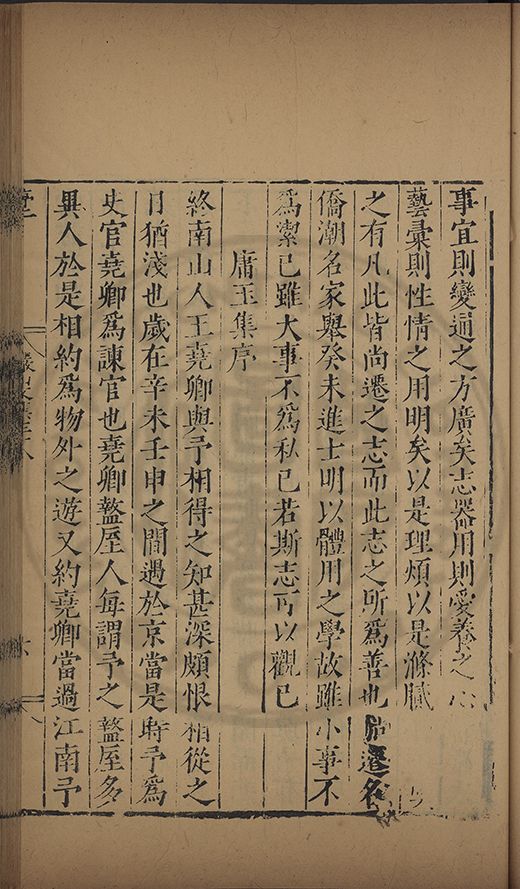 事宜則變通之方廣矣志器用則愛養之心
藝彙則性情之用明矣以是理煩以是滌膩
之有凡此皆尚遷之志而此志之所為善也尚遷名
僑潮名家舉癸未進士明以體用之學故雖小事不
為潔已雖大事不為私已若斯志可以觀已
庸玉集序
終南山人王堯卿與予相得之知甚深頗恨相從之
日猶淺也歲在辛未壬申之間遇於京當是時予為
史官堯卿為諫官也堯卿盩厔人每謂予之盩厔多
異人於是相約為物外之遊又約堯卿當過江南予